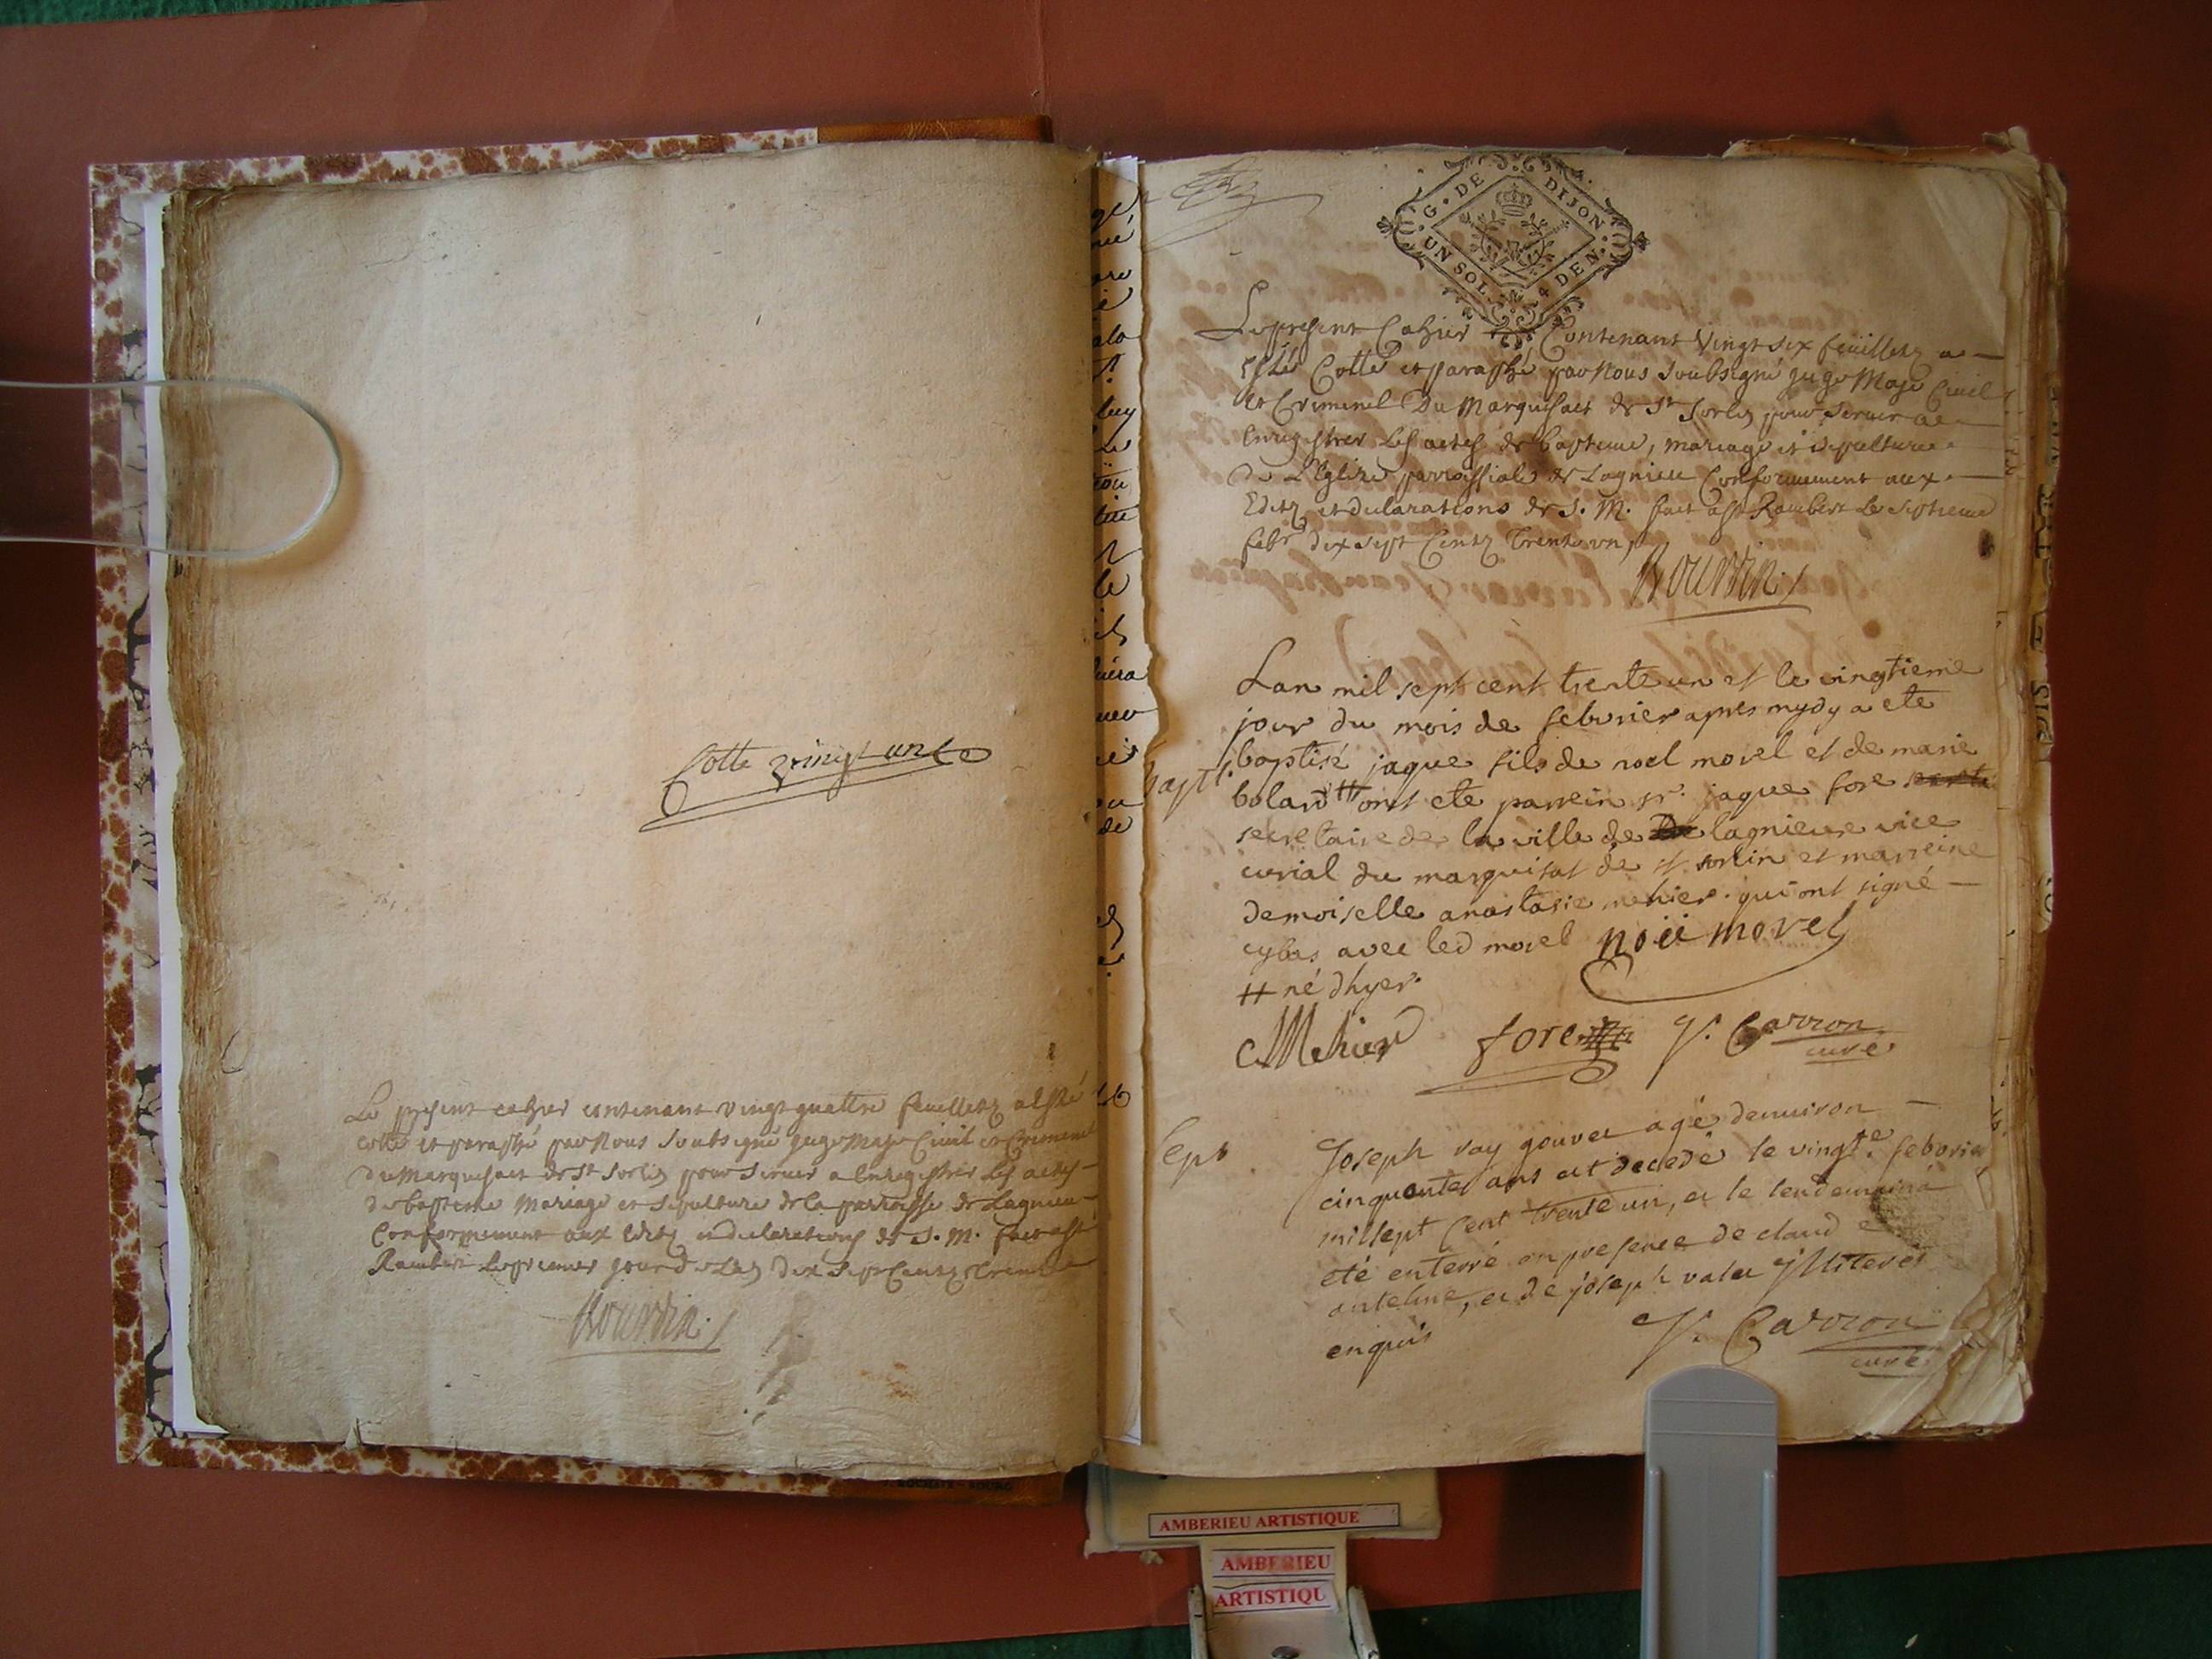 Cotte vingt un
Le present cahier contenant vingt quattre feuilletz a esté
cotté et paraphé par Nous soubsigné juge Maje Civil et Criminel
du Marquisat de St Sorlin pour servir a Enregistrer les actes
de bapteme Mariage et Sepulture de la parroisse de Lagnieu
Conformement aux Editz et declarations de S. M. fait a St
Rambert le premier jour de dix sept Centz trente
Bourdin
G. DE DIJON
UN SOL. 4 DEN.
Le present Cahier Contenant Vingt six feüilletz a
esté Cotté et paraphé par Nous soubsigné juge Maje Civil
et Criminel Du Marquisat de St Sorlin pour servir a
Enregistrer Les actes de bapteme, mariage et sepulture
de L'Eglise parrossiale de Lagnieu Conformement aux
Editz et declarations de S. M. fait a St Rambert le septieme
febr dix sept Centz Trente un
Bourdin
Lan mil sept cent trente un et le vingtieme
jour du mois de febvrier apres mydy a ete
bapt. baptisé jaque fils de noel morel et de marie
bolard # ont ete parrein sr. jaque fore
secretaire de la ville de lagnieue vice
curial du marquisat de st sorlin et marreine
demoiselle anastasie mehier qui ont signé
cybas avec led morel noël morel
# né dhyer.
Mehier fore J. Carron
curé
Sep Joseph ray gouvet agé denuiron
cinquantes ans est decedé le vingte. febvrier
mil sept Cent trente un, et le lendemain a
eté enterré en presence de claude
antelme, et de joseph valet jlliterés
enquis J. Carron
curé
AMBERIEU ARTISTIQUE
AMBERIEU
ARTISTIQU